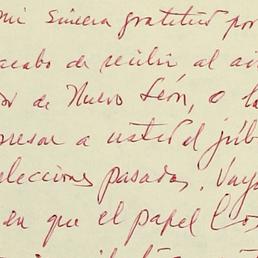 mi sincera gratitud por
acabo de recibir al
or de Nuevo León, o la
presar a usted el júb
elecciones pasadas. Vay
en que el papel